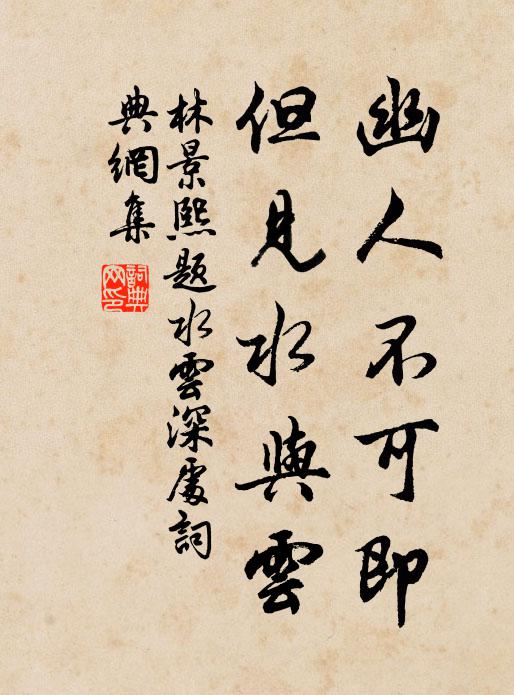 幽人不可即
但見水與雲
林景熙題水雲深處詞
典網集
詞典
网印